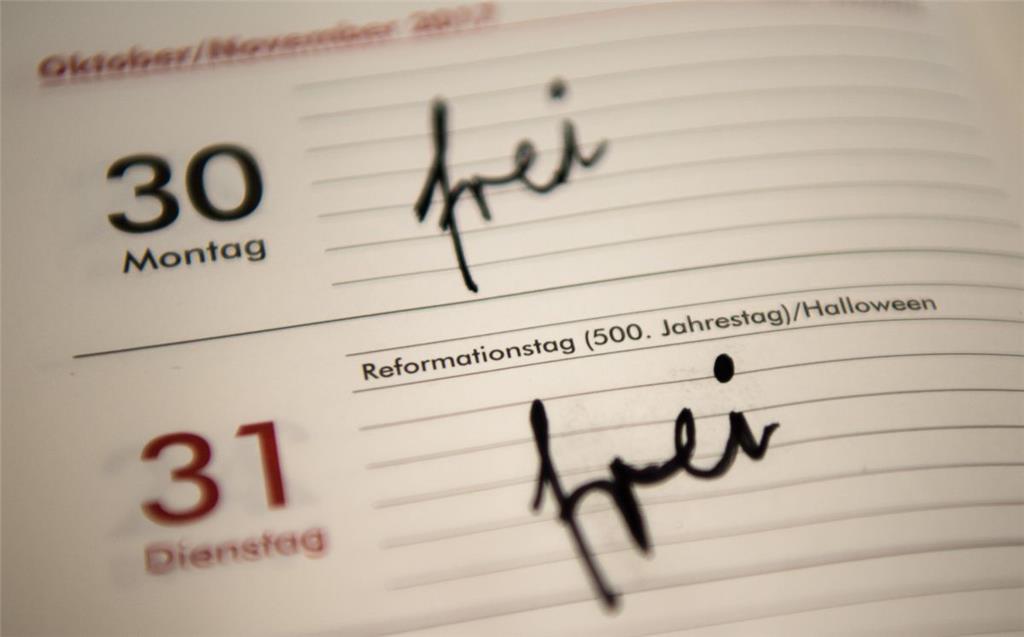 Oktober/November 2017
30
Montag
frei
Reformationstag (500. Jahrestag)/Halloween
31
Dienstag
frei